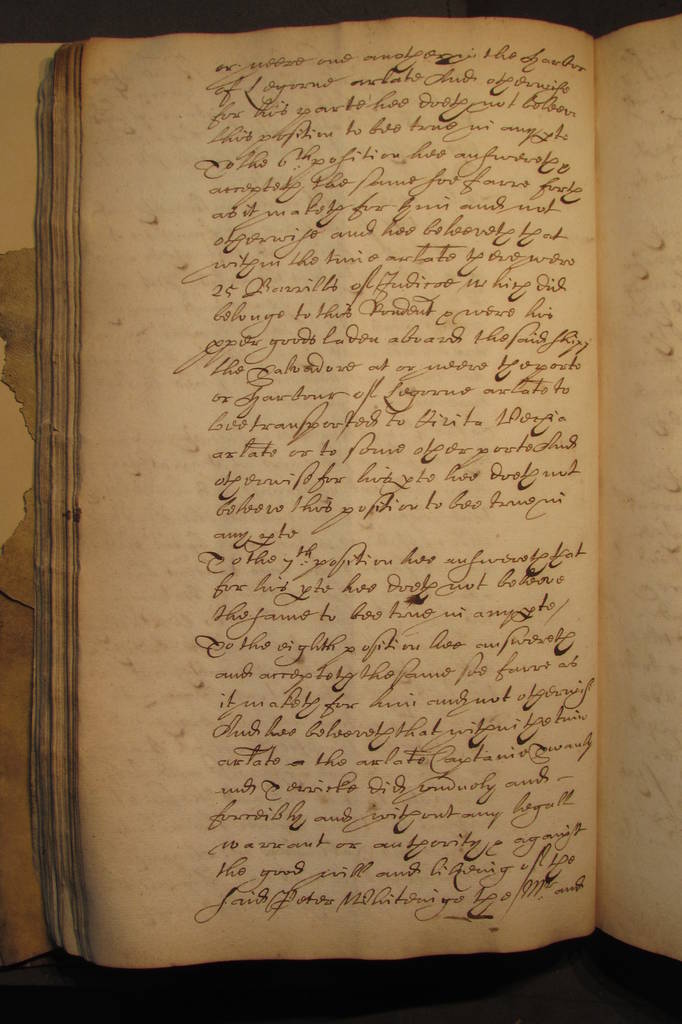 or neere one another in the Harbor
of Legorne arlate And otherwise
for his parte hee doeth not beleeve
this position to bee true in any pte
To the 6th position hee answereth &
accepteth the same soe farre forth
as it maketh for him and not
otherwise and hee beleeveth that
within the time arlate there were
25 Barrills of Indicoe which did
belonge to this Rondent & were his
pper goods laden aboard the said shipp
the Salvadore at or neere the porte
or Harbour of Legorne arlate to
bee transported to Civita Vechia
arlate or to some other porte And
otherwise for his pte hee doeth not
beleeve this position to bee true in
any pte
To the 7th position hee answereth that
for his pte hee doeth not beleeve
the same to bee true in any pte /
To the eighth position hee answereth
and accepteth the same soe farre as
it maketh for him and not otherwise
And hee beleeveth that within the time
arlate the arlate Captaine Swanly
and Derricke did unduely and
forceibly and without any legall
warrant or authority & against
the good will and likeing of the
said Peter Whiteinge the Mr and